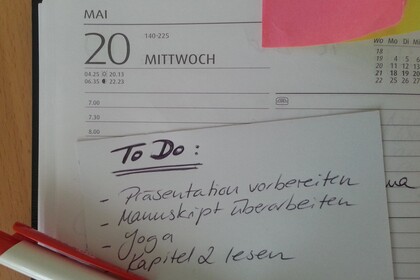 MAI
20
140-225
MITTWOCH
04.25 20.13
06.35 22.23
7.00
7.30
8.00
To Do :
- Präsentation vorbereiten
- Manuskript überarbeiten
- Yoga
- Kapitel 2 lesen
Wo Mo Di Mi
18
19 4 5 6
20 11 12 13
21 18 19 20
22 25 26 27